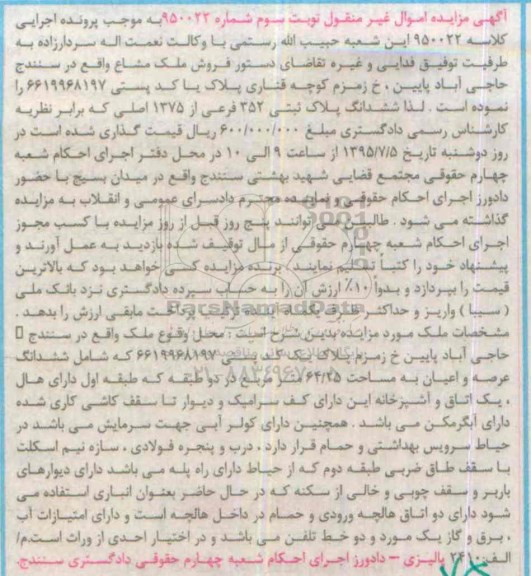 آگهی مزایده اموال غیر منقول نوبت سوم شماره ۹۵۰۰۲۲ به موجب پرونده اجرایی
کلاسه ۹۵۰۰۲۲ این شعبه حبیب الله رستمی با وکالت نعمت اله سردارزاده به
طرفیت توفیق فدایی و غیره تقاضای دستور فروش ملک مشاع واقع در سنندج
حاجی آباد پایین ، خ زمزم کوچه قناری پلاک با کد پستی ۶۶۱۹۹۶۸۱۹۷ را
نموده است . لذا ششدانگ پلاک ثبتی ۳۵۲ فرعی از ۱۳۷۵ اصلی که برابر نظریه
کارشناس رسمی دادگستری مبلغ ۶۰۰/۰۰۰/۰۰۰ ریال قیمت گذاری شده است در
روز دوشنبه تاریخ ۱۳۹۵/۷/۵ از ساعت ۹ الی ۱۰ در محل دفتر اجرای احکام شعبه
چهارم حقوقی مجتمع قضایی شهید بهشتی سنندج واقع در میدان بسیج با حضور
دادورز اجرای احکام حقوقی و نماینده محترم دادسرای عمومی و انقلاب به مزایده
گذاشته می شود . طالبین می توانند پنج روز قبل از روز مزایده با کسب مجوز
اجرای احکام شعبه چهارم حقوقی از مال توقیف شده بازدید به عمل آورند و
پیشنهاد خود را کتباً تسلیم نمایند . برنده مزایده کسی خواهد بود که بالاترین
قیمت را بپردازد و بدواً ۱۰٪ ارزش آن را به حساب سپرده دادگستری نزد بانک ملی
( سیبا ) واریز و حداکثر ظرف یک ماه ترتیب پرداخت مابقی ارزش را بدهد .
مشخصات ملک مورد مزایده بدین شرح است : محل وقوع ملک واقع در سنندج
حاجی آباد پایین خ زمزم پلاک کد پستی ۶۶۱۹۹۶۸۱۹۷ که شامل ششدانگ
عرصه و اعیان به مساحت ۶۴/۲۵ متر مربع در دو طبقه که طبقه اول دارای هال
، یک اتاق و آشپزخانه این دارای کف سرامیک و دیوار تا سقف کاشی کاری شده
دارای آبگرمکن می باشد . همچنین دارای کولر آبی جهت سرمایش می باشد در
حیاط سرویس بهداشتی و حمام قرار دارد ، درب و پنجره فولادی ، سازه نیم اسکلت
با سقف طاق ضربی طبقه دوم که از حیاط دارای راه پله می باشد دارای دیوارهای
باربر و سقف چوبی و خالی از سکنه که در حال حاضر بعنوان انباری استفاده می
شود دارای دو اتاق هالچه ورودی و حمام در داخل هالچه است و دارای امتیازات آب
، برق و گاز یک مورد و دو خط تلفن می باشد و در اختیار احدی از وراث است.م/
الف:۲۴۱۰ پالیزی – دادورز اجرای احکام شعبه چهارم حقوقی دادگستری سنندج.
ParsNamadData